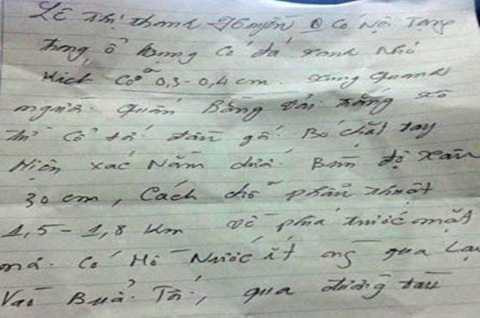 Lê Thị Thanh Huyền Có Nội Tạng
trong ổ bụng Có đá xanh Nhỏ
Kích Cỡ 0,3 - 0,4 cm. xung quanh
người. quấn Bằng vải trắng
thì Có đá gó Bó chặt tay
Hiện xác Nằm dưới Bùn độ sâu
30 cm, Cách chỗ phẫu thuật
1,5 - 1,8 Km về phía trước mặt
má. Có Hố Nước ít ng qua Lại
Vào Buổi Tối, qua đường tàu